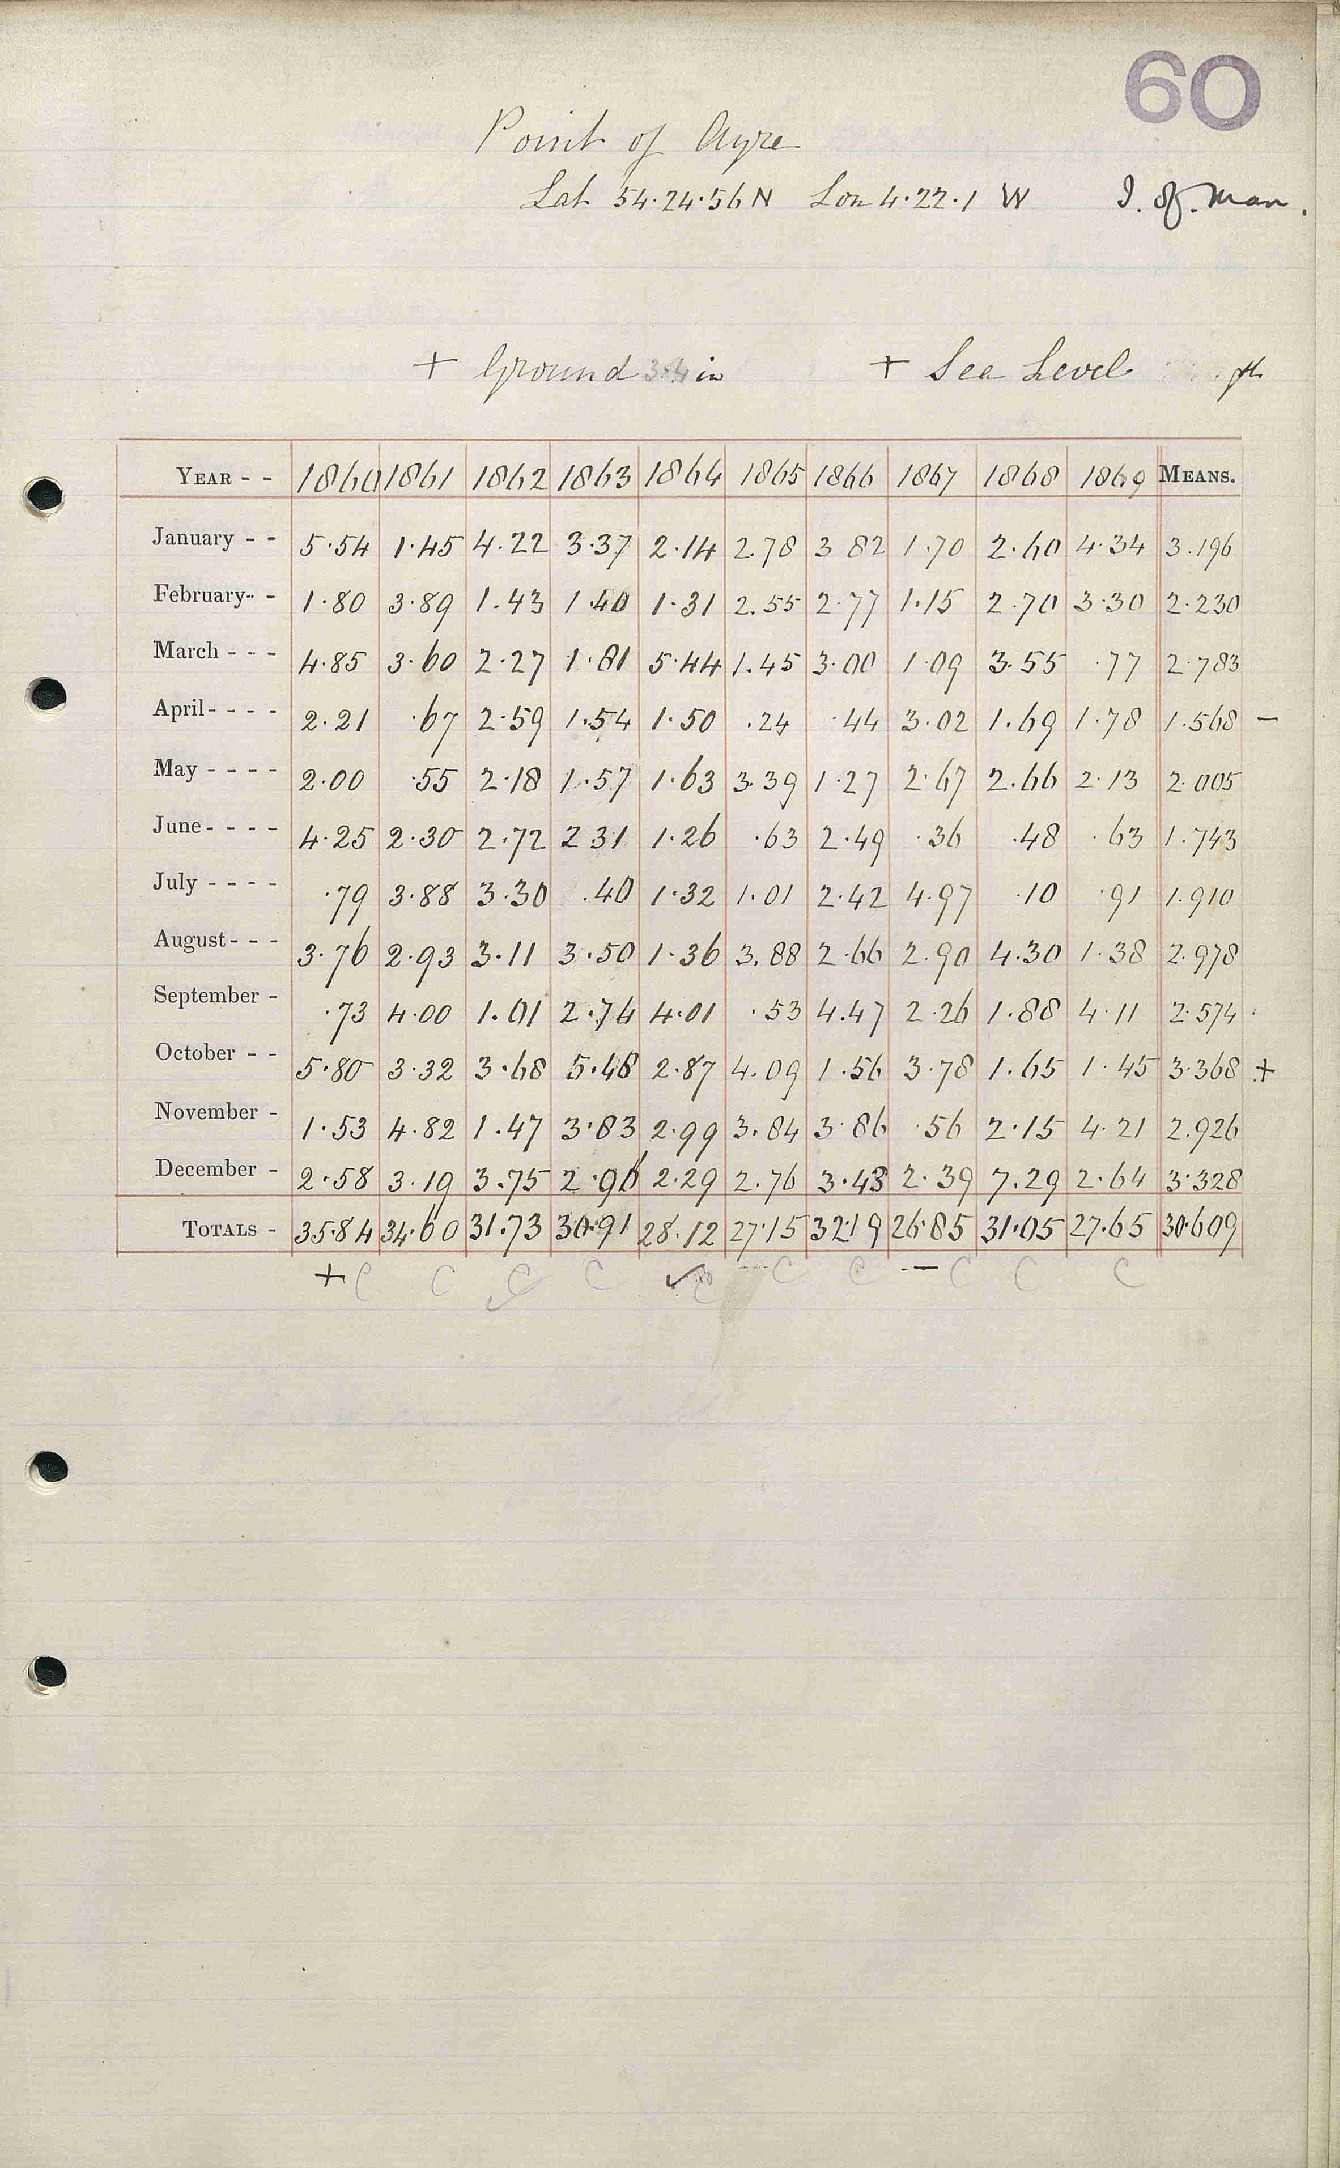 60
Point of Ayre
Lat 54.24.56 N Lon 4.22.1 W I. of. Man.
+ Ground 3.4 in + Sea Level ft
YEAR - - 1860 1861 1862 1863 1864 1865 1866 1867 1868 1869 MEANS.
January - - 5.54 1.45 4.22 3.37 2.14 2.78 3 82 1.70 2.60 4.34 3.196
February- - 1.80 3.89 1.43 1 40 1.31 2.55 2.77 1.15 2.70 3.30 2.230
March - - - 4.85 3.60 2.27 1.81 5.44 1.45 3.00 1.09 3.55 .77 2.783
April- - - - 2.21 .67 2.59 1.54 1.50 .24 .44 3.02 1.69 1.78 1.568 —
May - - - - 2.00 .55 2.18 1.57 1.63 3.39 1.27 2.67 2.66 2.13 2.005
June- - - - 4.25 2.30 2.72 2 31 1.26 .63 2.49 .36 .48 .63 1.743
July - - - - .79 3.88 3.30 .40 1.32 1.01 2.42 4.97 .10 .91 1.910
August- - - 3.76 2.93 3.11 3.50 1.36 3.88 2.66 2.90 4.30 1.38 2.978
September - .73 4.00 1.01 2.74 4.01 .53 4.47 2.26 1.88 4.11 2.574
October - - 5.80 3.32 3.68 5.48 2.87 4.09 1.56 3.78 1.65 1.45 3.368 +
November - 1.53 4.82 1.47 3.83 2.99 3.84 3.86 .56 2.15 4.21 2.926
December - 2.58 3.19 3.75 2.96 2.29 2.76 3.43 2.39 7.29 2.64 3.328
TOTALS - 35.84 34.60 31.73 30.91 28.12 27.15 32.19 26.85 31.05 27.65 30.609
+ C C C C ✓ C C C — C C C